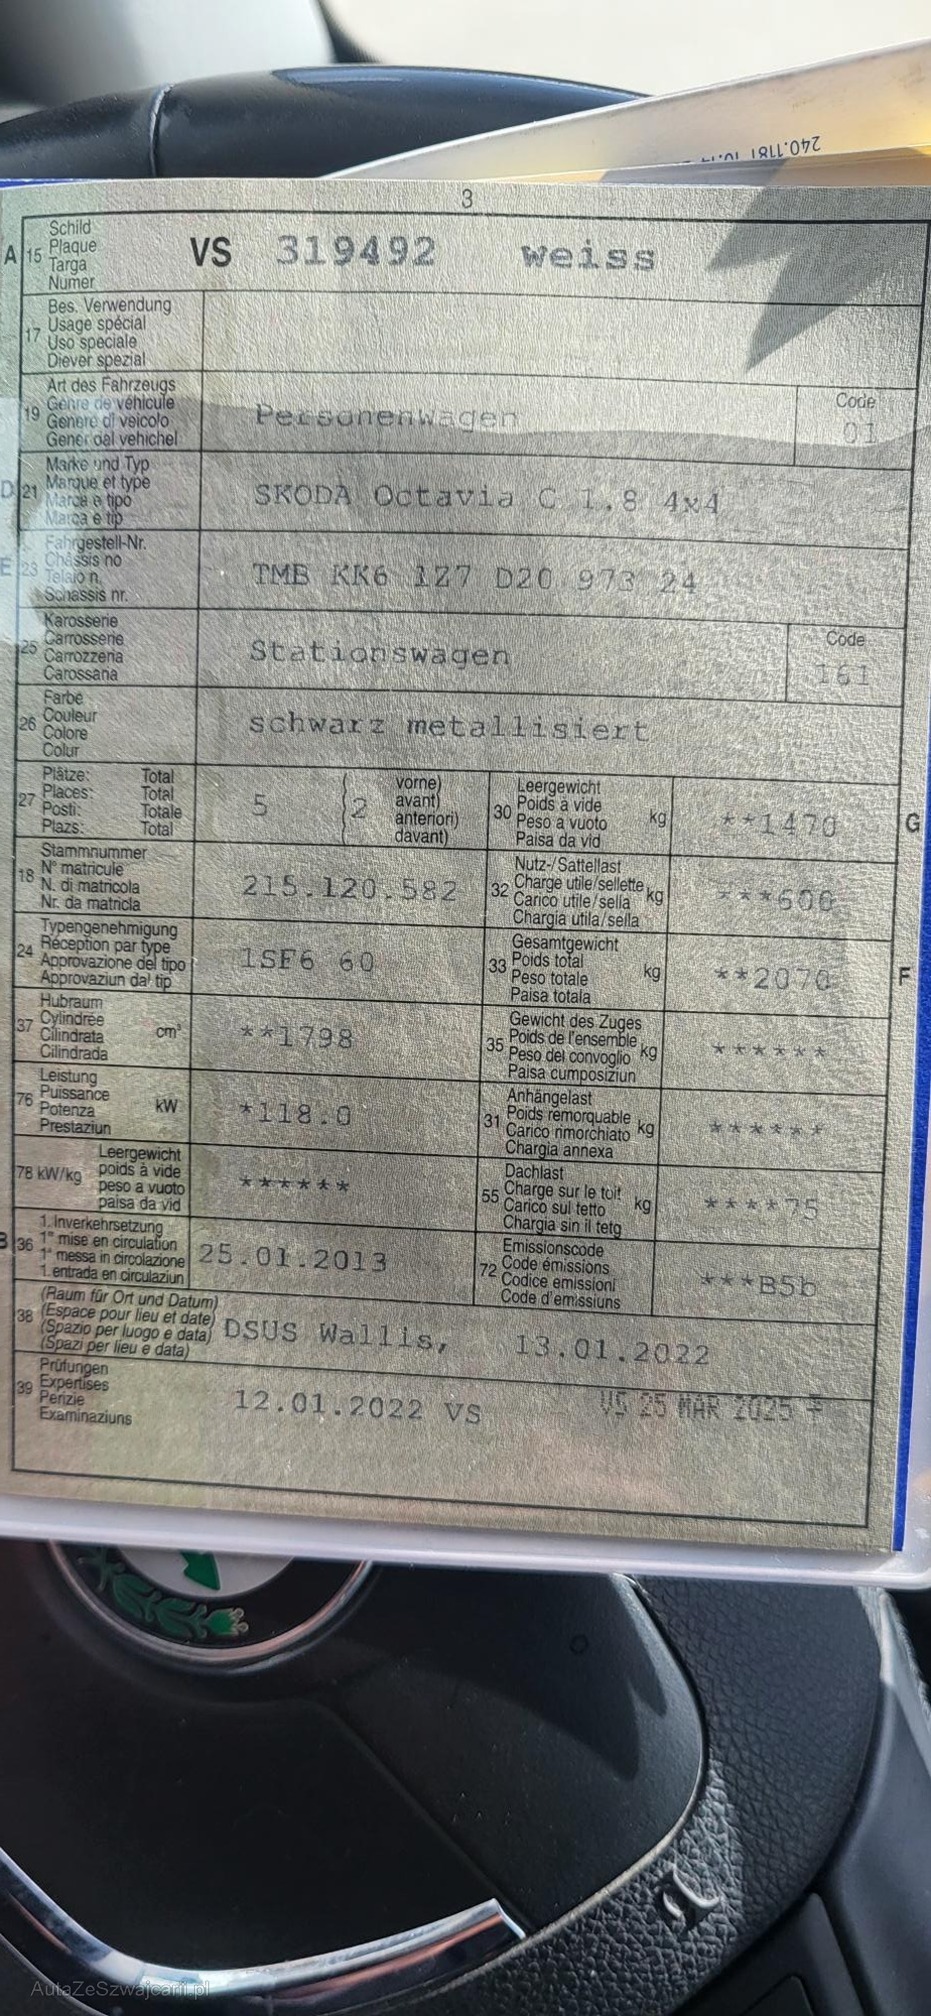 240.1181 10.14
3
A 15 Schild
Plaque
Targa
Numer
VS 319492 weiss
17 Bes. Verwendung
Usage spécial
Uso speciale
Diever spezial
19 Art des Fahrzeugs
Genre de véhicule
Genere di veicolo
Gener dal vehichel
Personenwagen
Code
01
D 21 Marke und Typ
Marque et type
Marca e tipo
Marca e tip
SKODA Octavia C 1.8 4x4
E 23 Fahrgestell-Nr.
Châssis no
Telaio n.
Schassis nr.
TMB KK6 1Z7 D20 973 24
25 Karosserie
Carrosserie
Carrozzeria
Carossaria
Stationswagen
Code
161
26 Farbe
Couleur
Colore
Colur
schwarz metallisiert
27 Plätze: Total
Places: Total
Posti: Totale
Plazs: Total
5 (2 vorne)
avant)
anteriori)
davant)
30 Leergewicht
Poids à vide
Peso a vuoto
Paisa da vid
kg
**1470
G
18 Stammnummer
N° matricule
N. di matricola
Nr. da matricla
215.120.582
32 Nutz-/Sattellast
Charge utile/sellette
Carico utile/sella
Chargia utila/sella
kg
***600
24 Typengenehmigung
Réception par type
Approvazione del tipo
Approvaziun dal tip
1SF6 60
33 Gesamtgewicht
Poids total
Peso totale
Paisa totala
kg
**2070
F
37 Hubraum
Cylindrée
Cilindrata
Cilindrada
cm³
**1798
35 Gewicht des Zuges
Poids de l'ensemble
Peso del convoglio
Paisa cumposiziun
kg
******
76 Leistung
Puissance
Potenza
Prestaziun
kW
*118.0
31 Anhängelast
Poids remorquable
Carico rimorchiato
Chargia annexa
kg
******
78 kW/kg Leergewicht
poids à vide
peso a vuoto
paisa da vid
******
55 Dachlast
Charge sur le toit
Carico sul tetto
Chargia sin il tetg
kg
****75
B 36 1. Inverkehrsetzung
1re mise en circulation
1a messa in circolazione
1. entrada en circulaziun
25.01.2013
72 Emissionscode
Code émissions
Codice emissioni
Code d'emissiuns
***B5b
38 (Raum für Ort und Datum)
(Espace pour lieu et date)
(Spazio per luogo e data)
(Spazi per lieu e data)
DSUS Wallis, 13.01.2022
39 Prüfungen
Expertises
Perizie
Examinaziuns
12.01.2022 VS VS 25 MAR 2025
AutaZeSzwajcarii.pl